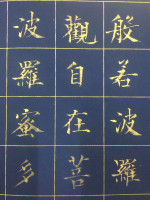 般若波羅
觀自在菩
波羅蜜多